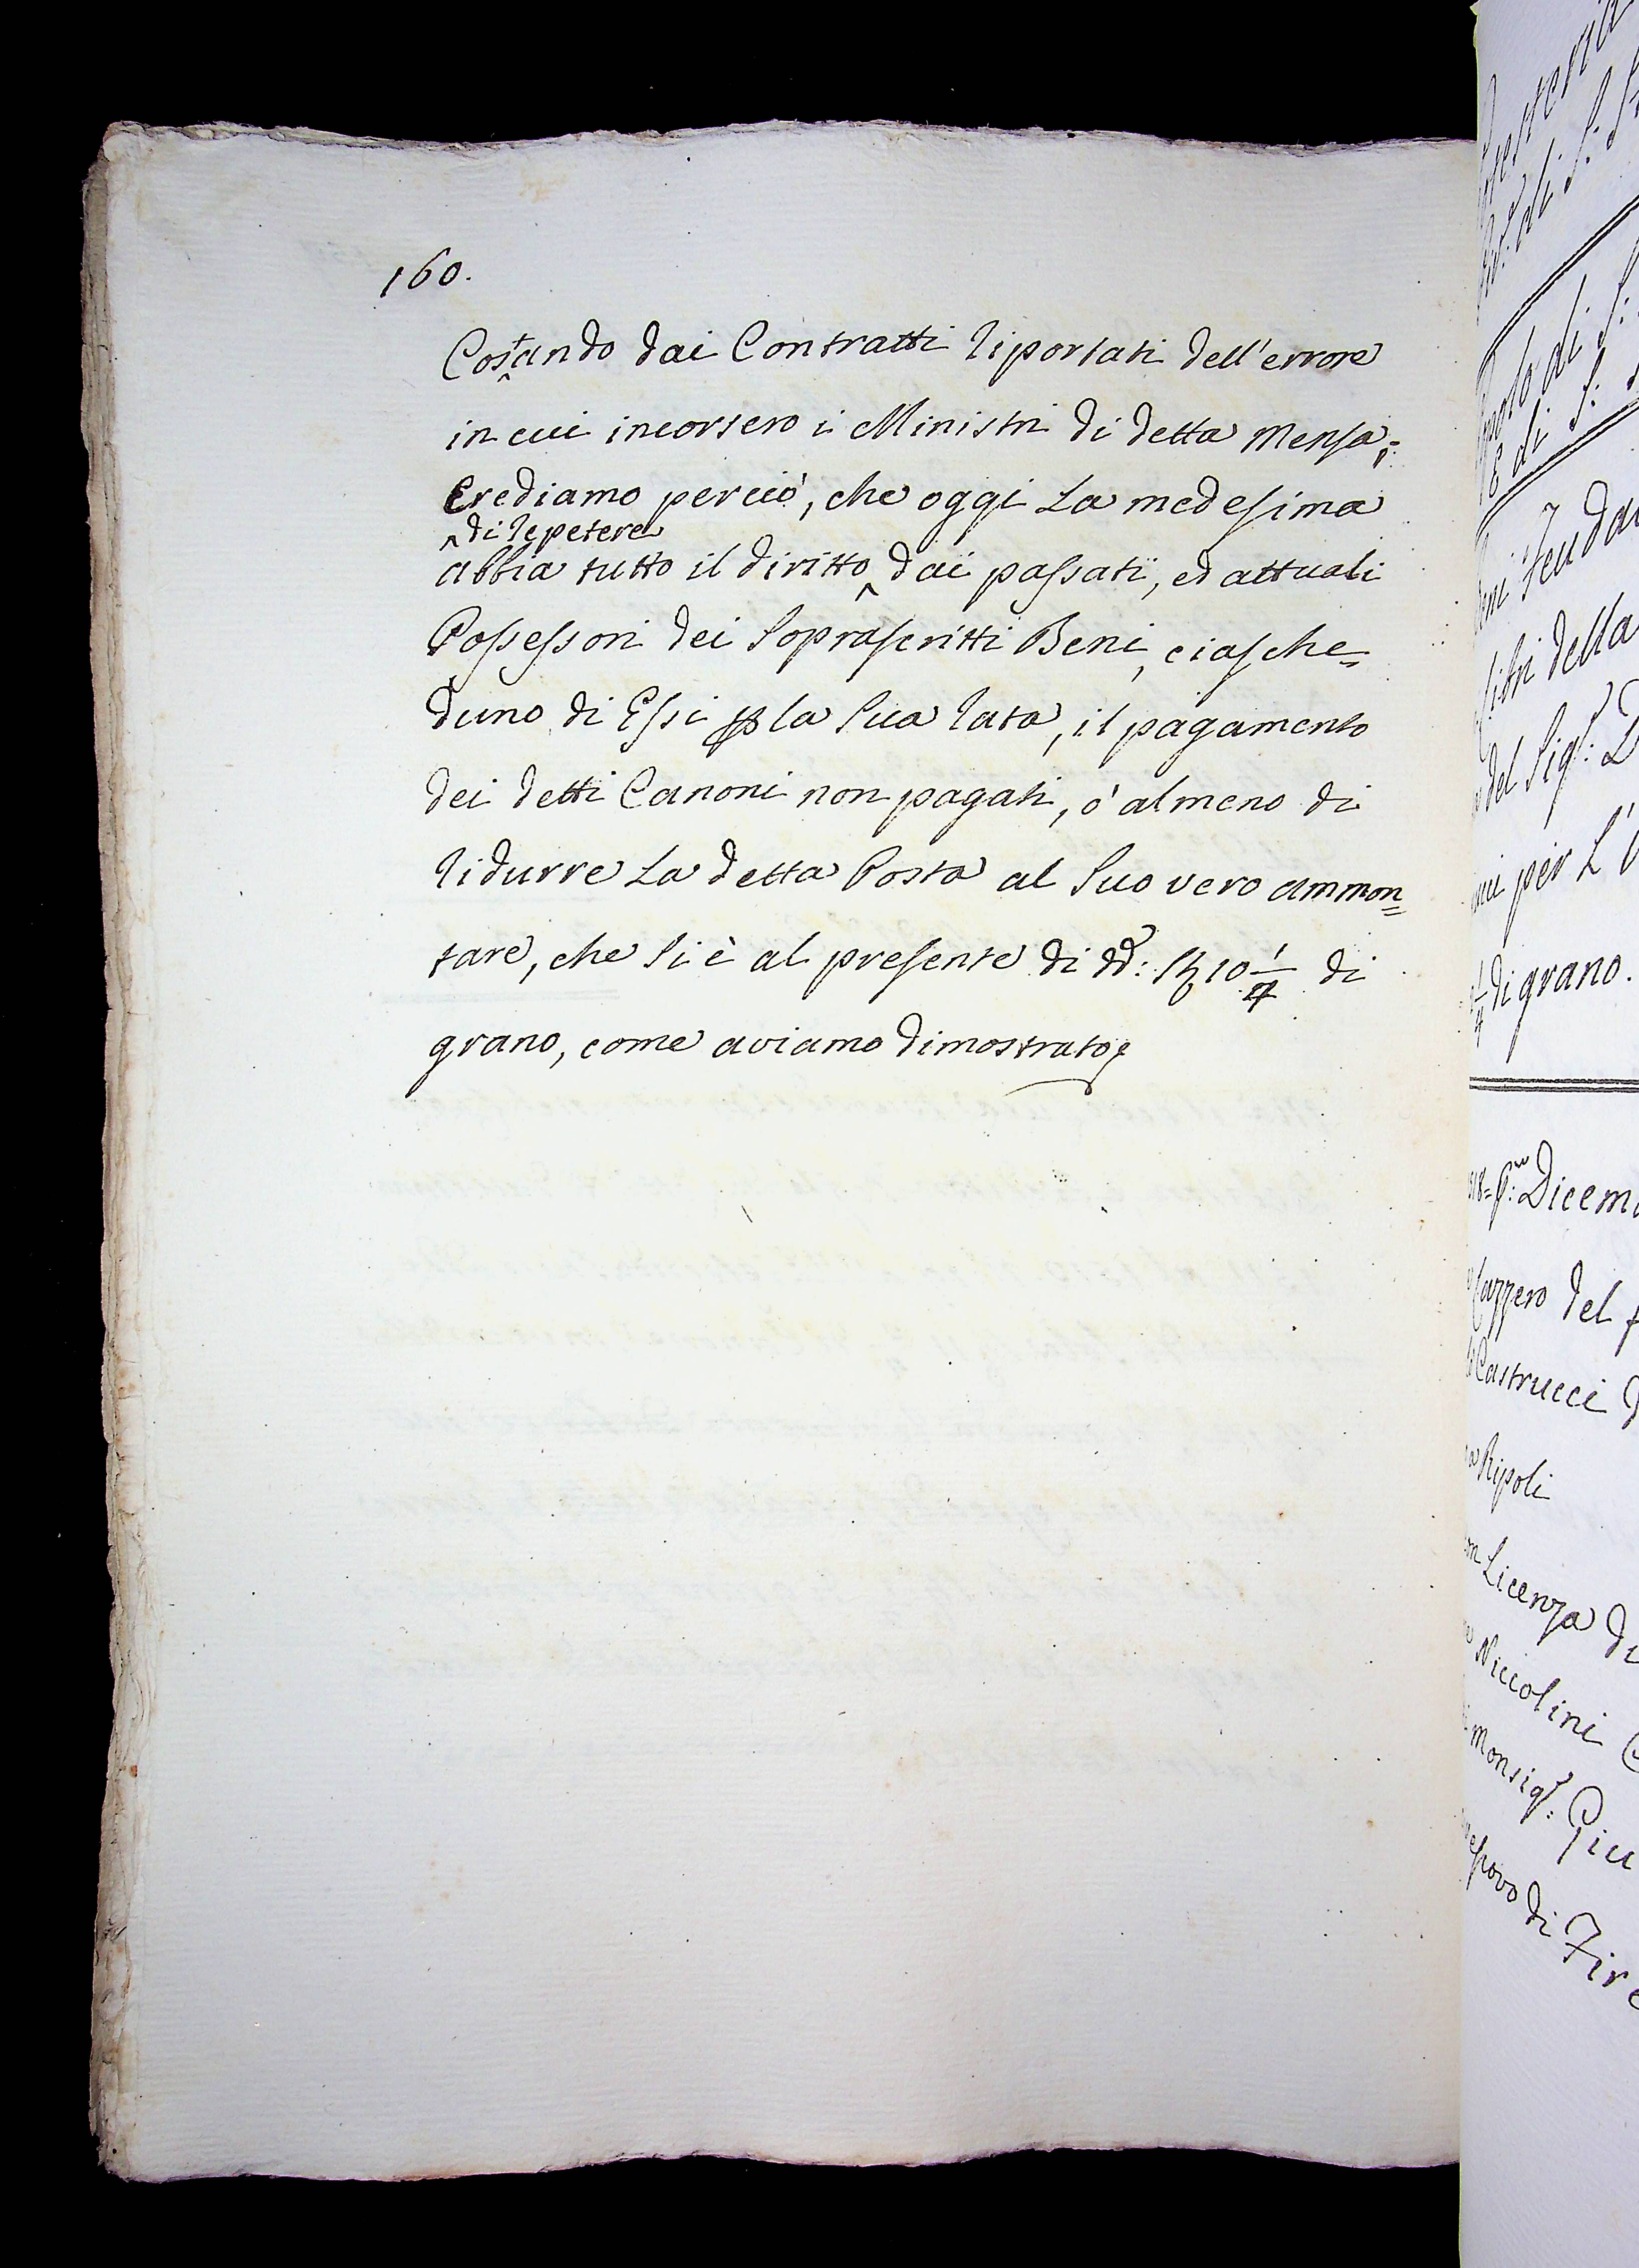 160.
Costando dai Contratti riportati dell'errore
in cui incorsero i Ministri di detta Mensa;
Crediamo perciò, che oggi La medesima
^di repetere
abbia tutto il diritto ^ dai passati, ed attuali
Possessori dei Soprascritti Beni, ciasche=
duno di Essi p la Sua rata, il pagamento
dei detti Canoni non pagati, ò almeno di
ridurre La detta Posta al Suo vero ammon=
tare, che Si è al presente di dd: 10 1/4 di
grano, come aviamo dimostrato
Feudar
Libri della
del Sig:
per L'
1/4 di grano.
Dicem
del
Castrucci
Ripoli
Licenza di
Niccolini
Monsig: Giu
di Fire